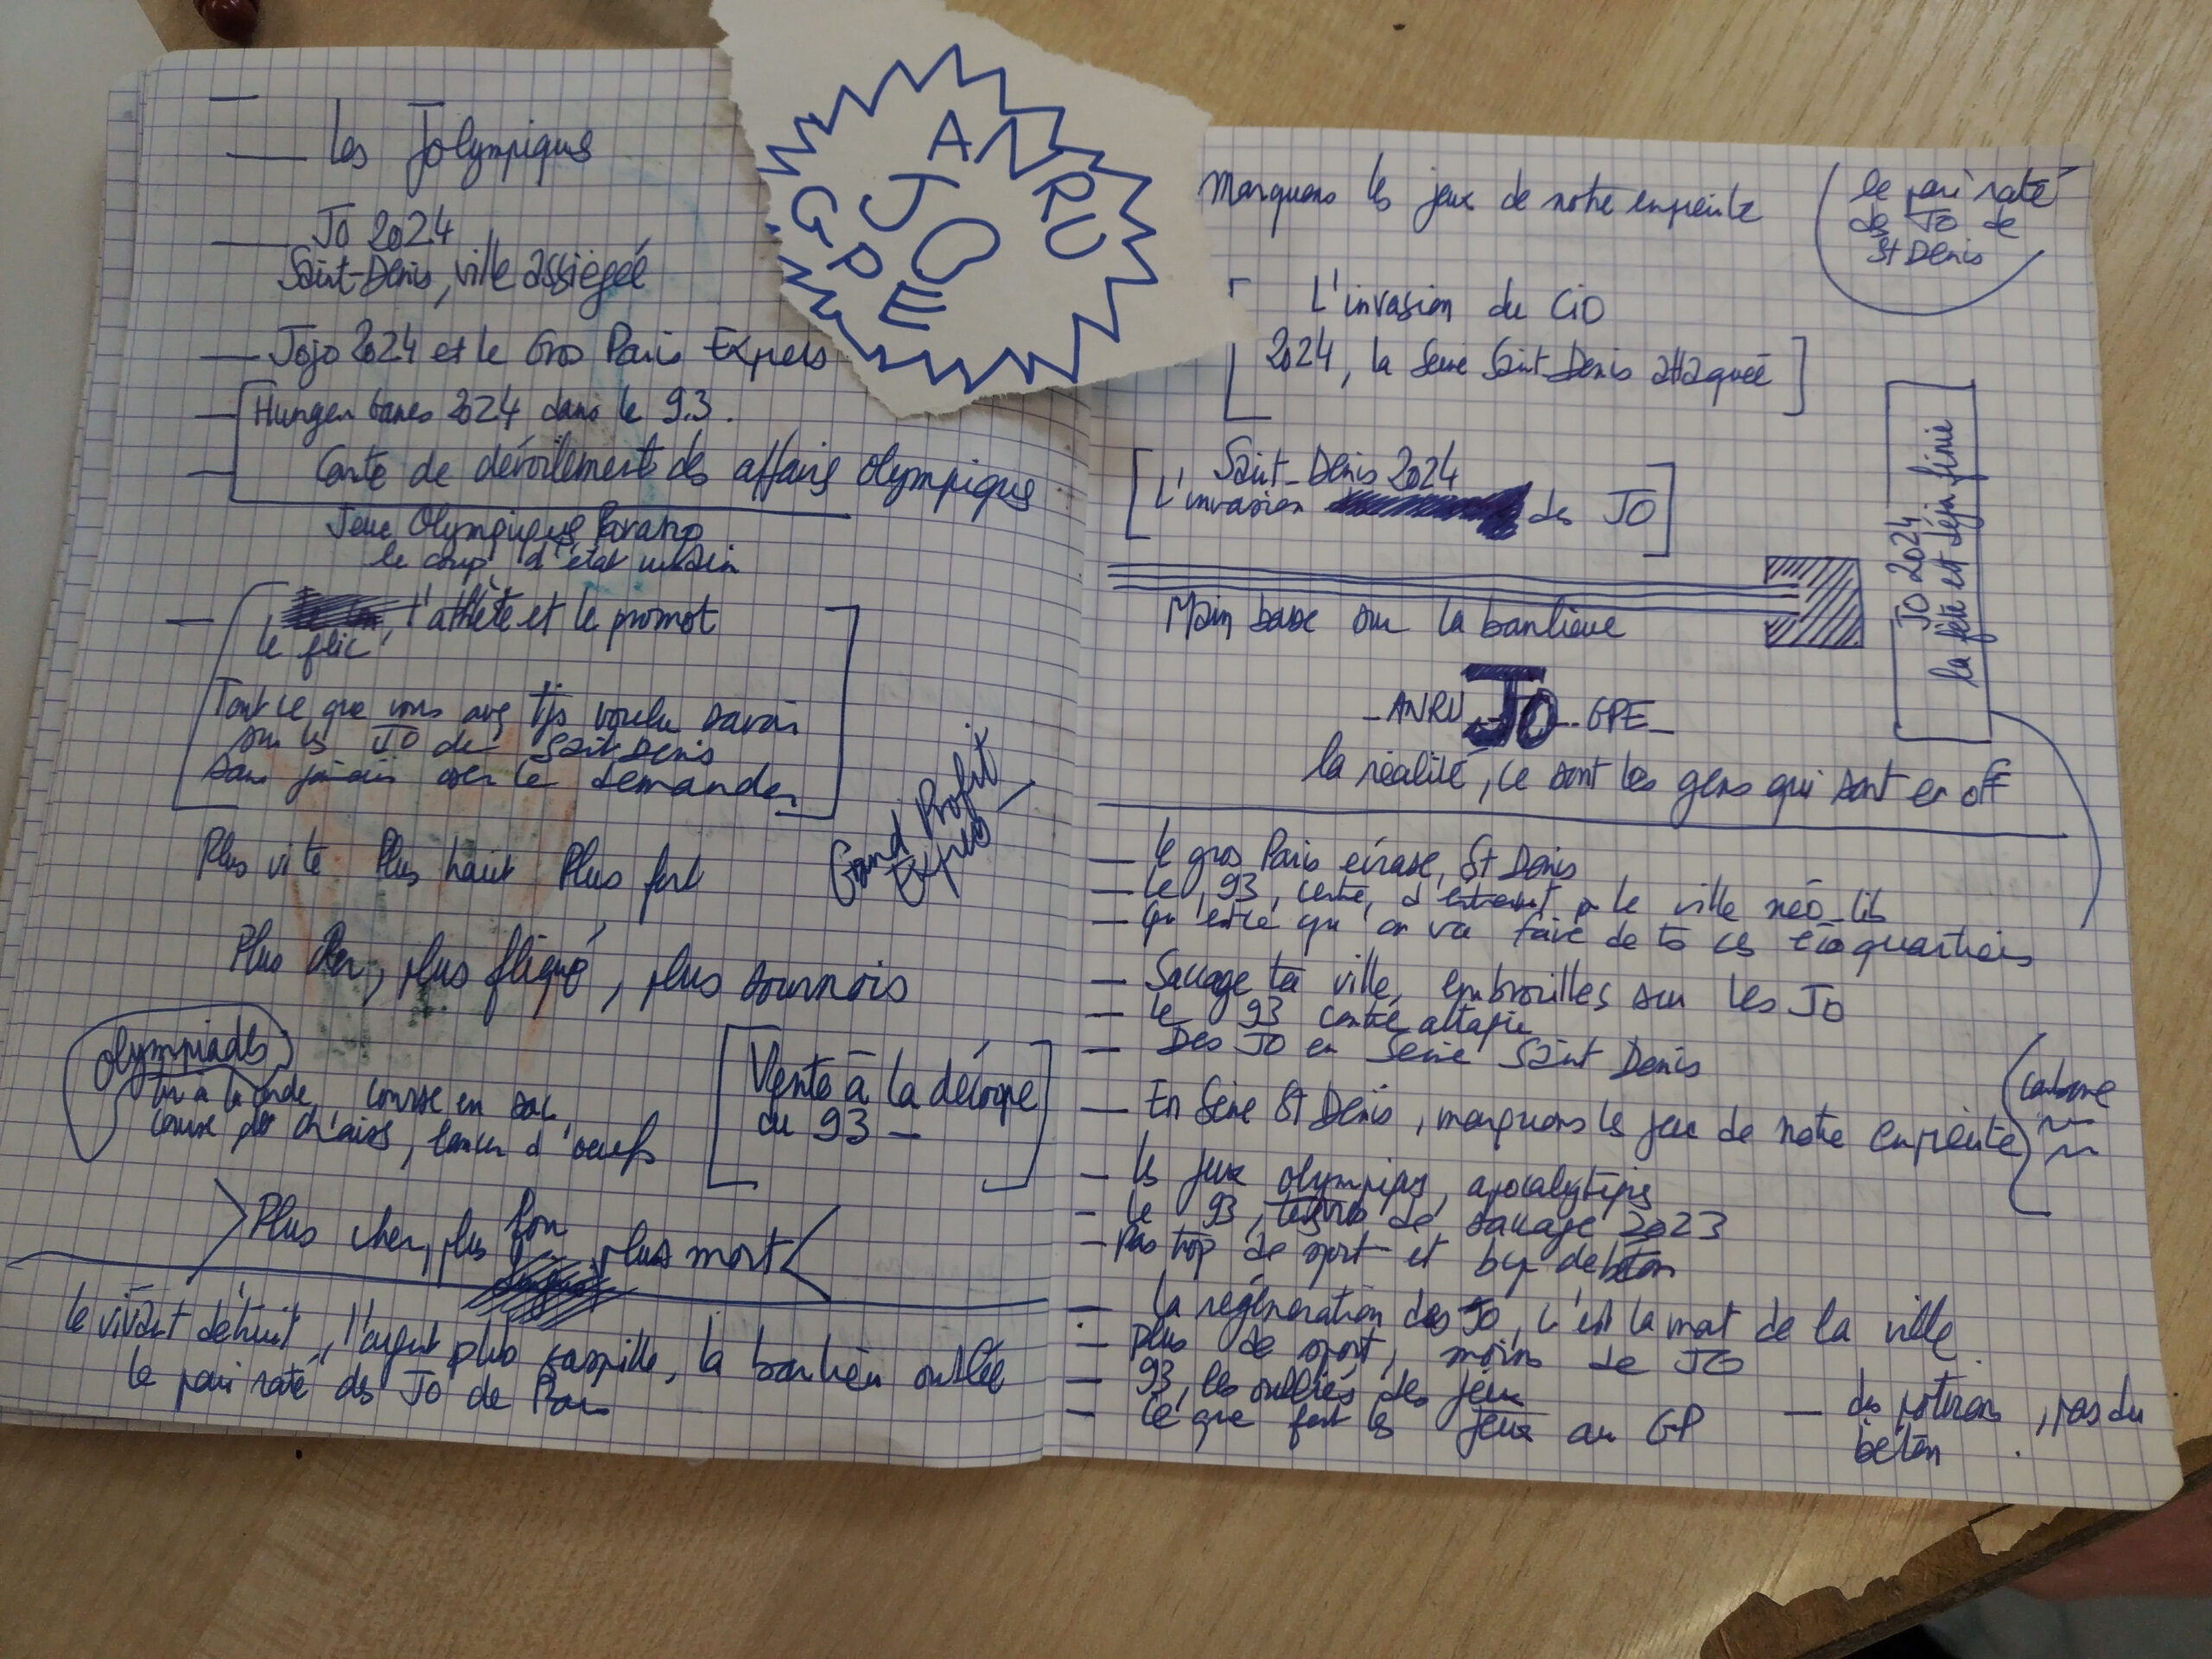 Les Jolympiques
JO 2024
Saint-Denis, ville assiégée
Jojo 2024 et le Gros Paris Express
Hunger Games 2024 dans le 9.3.
Carte de dévoilement des affaires olympiques
Jeux Olympiques
le coup d'état urbain
l'athète et le promot
le flic,
Tout ce que vous avez tjs voulu savoir
sur les JO de Saint Denis
sans jamais oser le demander
Grand Profit
Express
Plus vite Plus haut Plus fort
Plus cher, plus fliqué, plus sournois
Olympiades
course en sac,
lancer d'oeufs
Vente à la découpe
du 93
Plus cher, plus fou, plus mort
le vivant détruit, l'argent gaspillé, la banlieue oubliée
le pari raté des JO de Paris
ANRU
JO
GPE
Marquons les jeux de notre empreinte
le pari raté
des JO de
St Denis
L'invasion du CiO
2024, la Seine Saint-Denis attaquée
Saint-Denis 2024
L'invasion des JO
JO 2024
la fête est déjà finie
Main basse sur la banlieue
ANRU JO GPE
la réalité, ce sont les gens qui sont en off
le gros Paris écrase St Denis
le 93, centre d'entraînt pr le ville néo-lib
Qu'est ce qu'on va faire de ts ces écoquartiers
Saccage ta ville, embrouilles sur les JO
le 93 contre attaque
Des JO en Seine Saint Denis
En Seine St Denis, marquons les jeux de notre empreinte
carbone
les jeux olympiqs, apocalyptiqs
le 93, de saccage 2023
Pas trop de sport et bcp de béton
La régénération des JO, c'est la mort de la ville.
plus de sport, moins de JO
93, les oubliés des jeux
ce que font les jeux au GP
des potirons, pas du
béton.